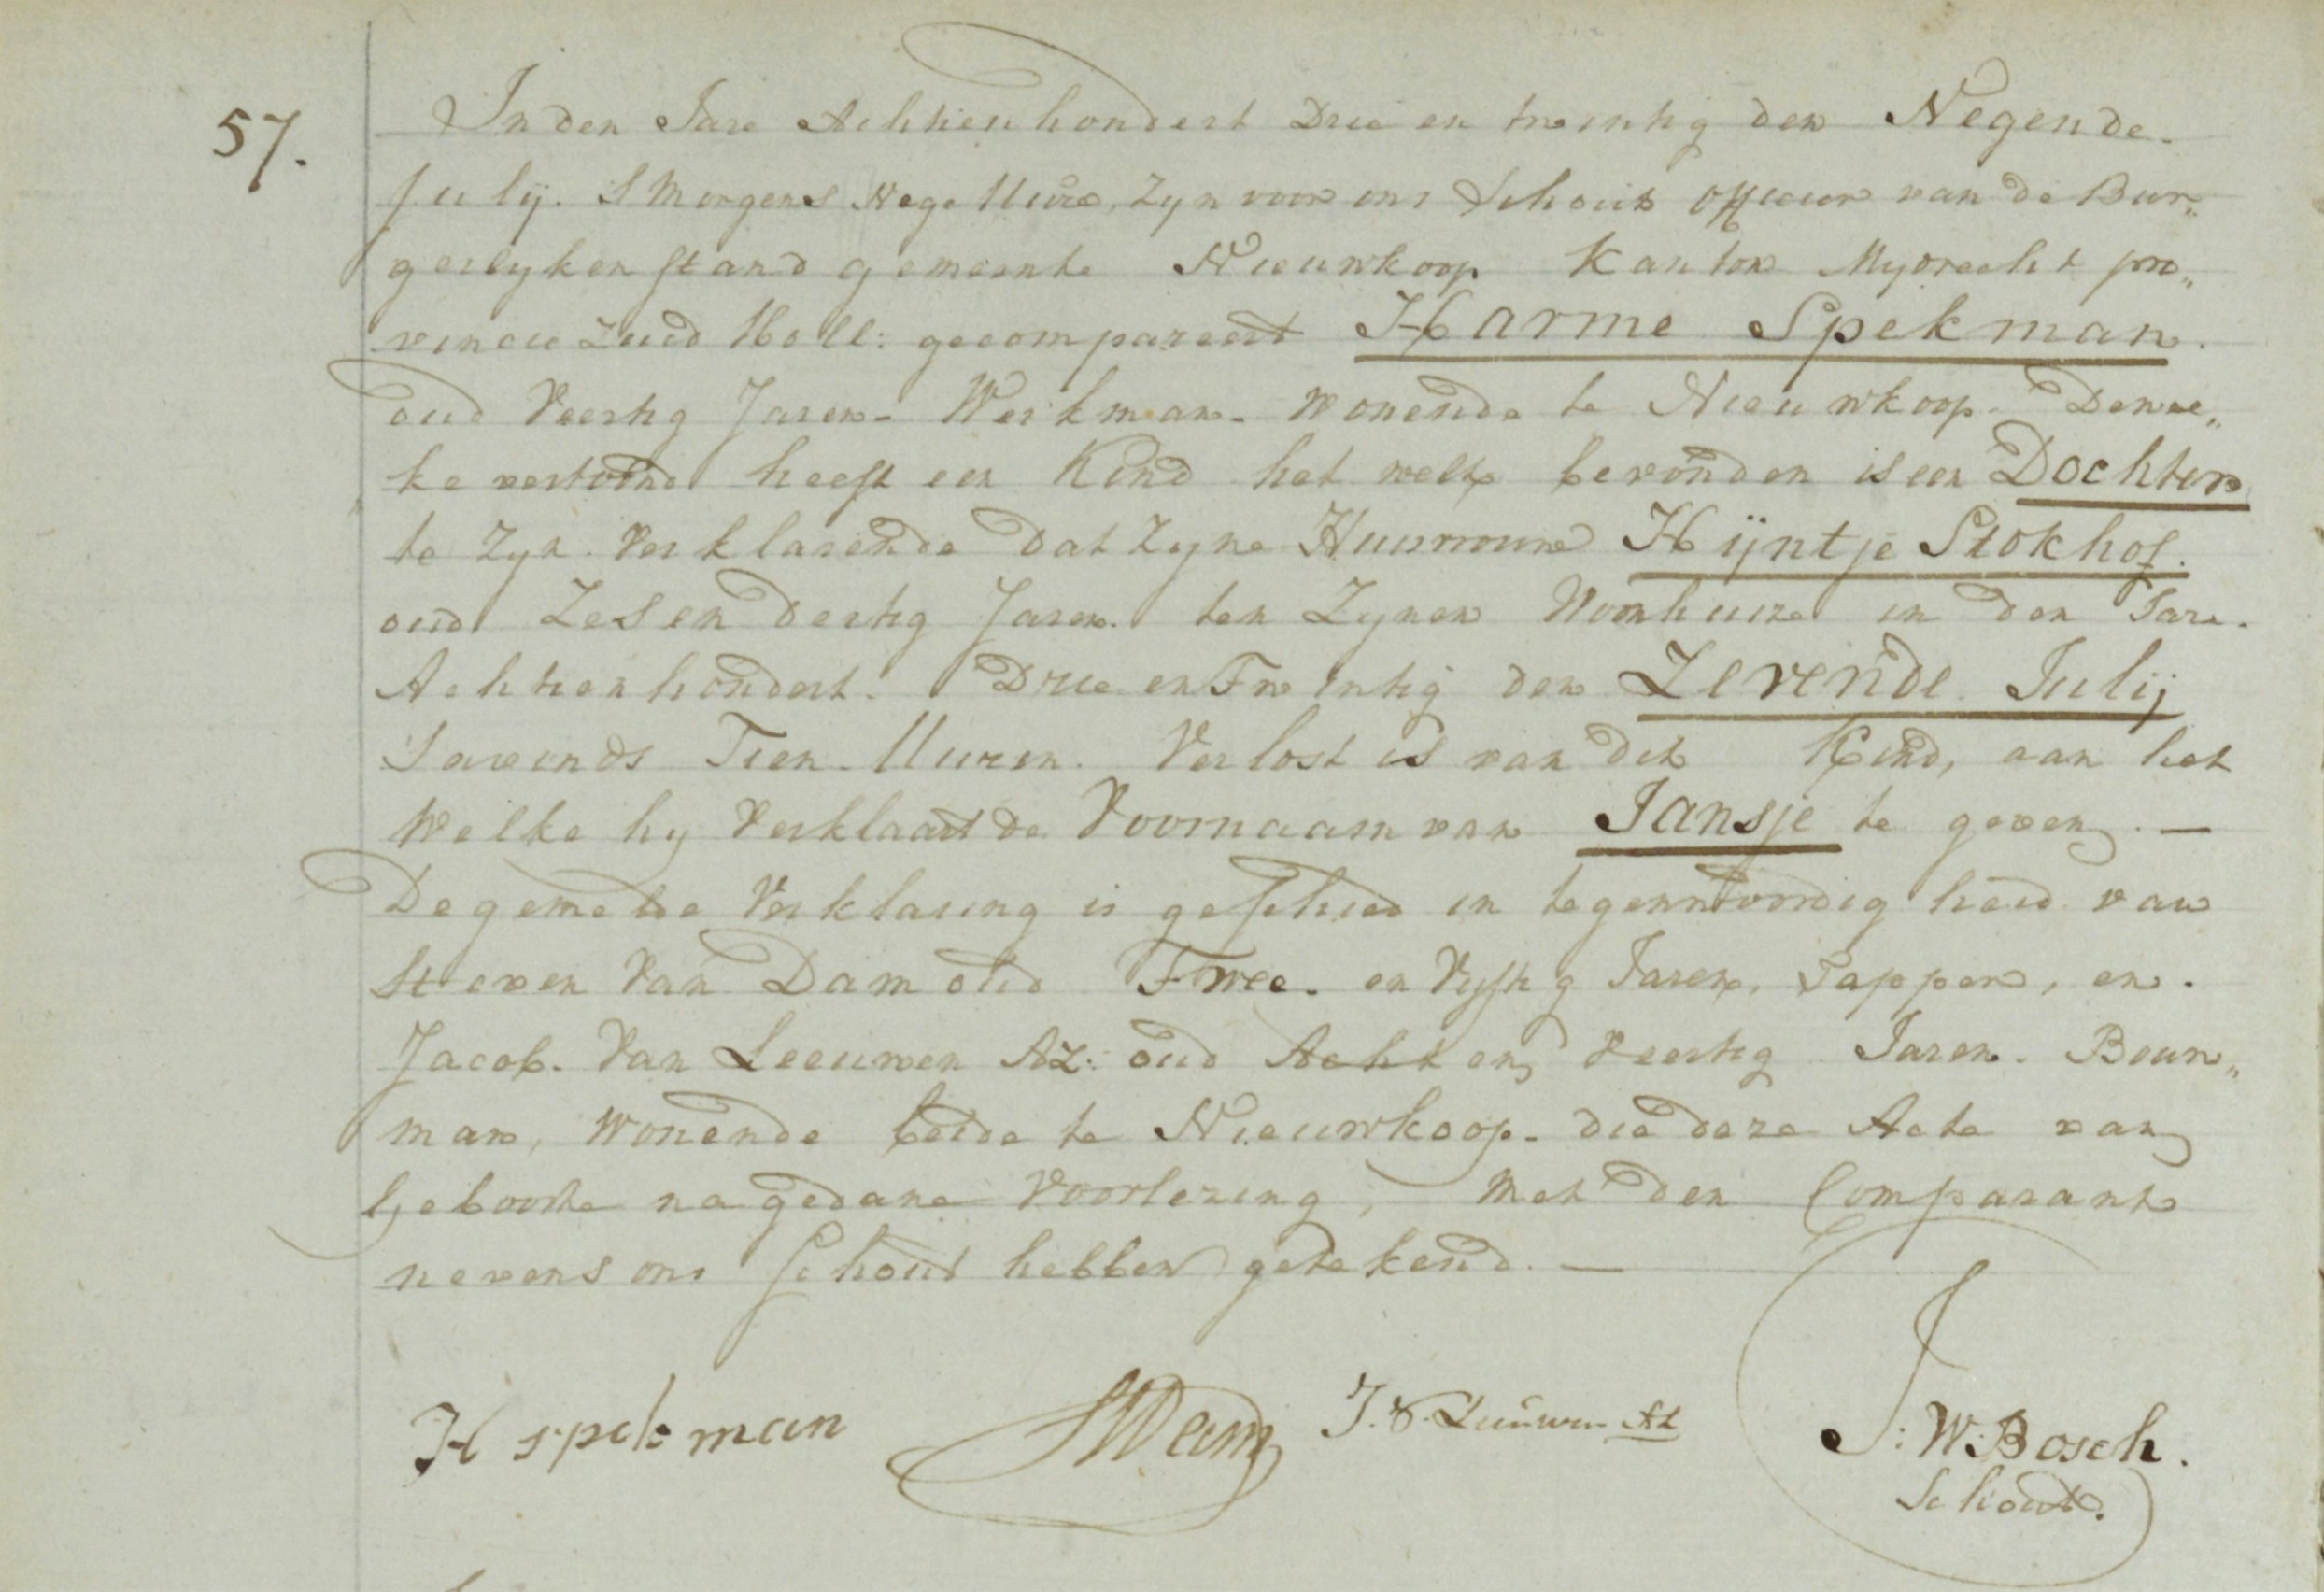 57.
In den Jare Achtienhondert Drie en twintig den Negende.
Julij. S Morgens Nege Uure, zyn voor ons Schout officier van de Bur„
gerlyken stand gemeente Nieuwkoop Kanton Mydrecht pro„
vincie Zuid Holl: gecompareert Harme Spekman.
oud Veertig Jaren - Werkman - wonende te Nieuwkoop - Dewel„
ke vertoond heeft een Kind het welk bevonden is een Dochter
te zyn. Verklarende dat zyne Huusvrouw Hijntje Stokhof.
oud Zes en dertig Jaren. ten zynen Woonhuize in den Jare.
Achtienhondert. Drie en Twintig den Zevende Julij
Savonds Tien Uuren. Verlost is van dit Kind, aan het
Welke hy Verklaart de Voornaam van Jansje te geven. —
De gemelde Verklaring is geschied in tegenwoordigheid van
Steven Van Dam oud Twee en Vyftig Jaren, Tapper, en.
Jacob. Van Leeuwen Az: oud Acht en Veertig Jaren. Bouw„
man, wonende beide te Nieuwkoop - die deze Acte van
Geboorte na gedane Voorlezing, met den Comparant
nevens ons Schout hebben getekend. —
H spekman SVDam J. v. Leeuwen Az J: W: Bosch.
Schout.